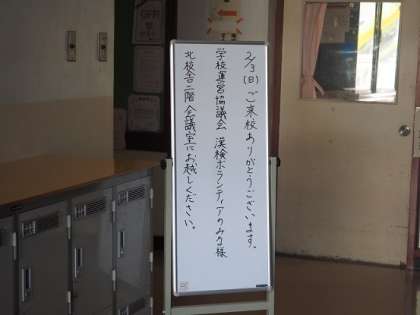 2/3(日)ご来校ありがとうございます。
学校運営協議会 漢検ボランティアのみな様
北校舎二階会議室にお越しください。